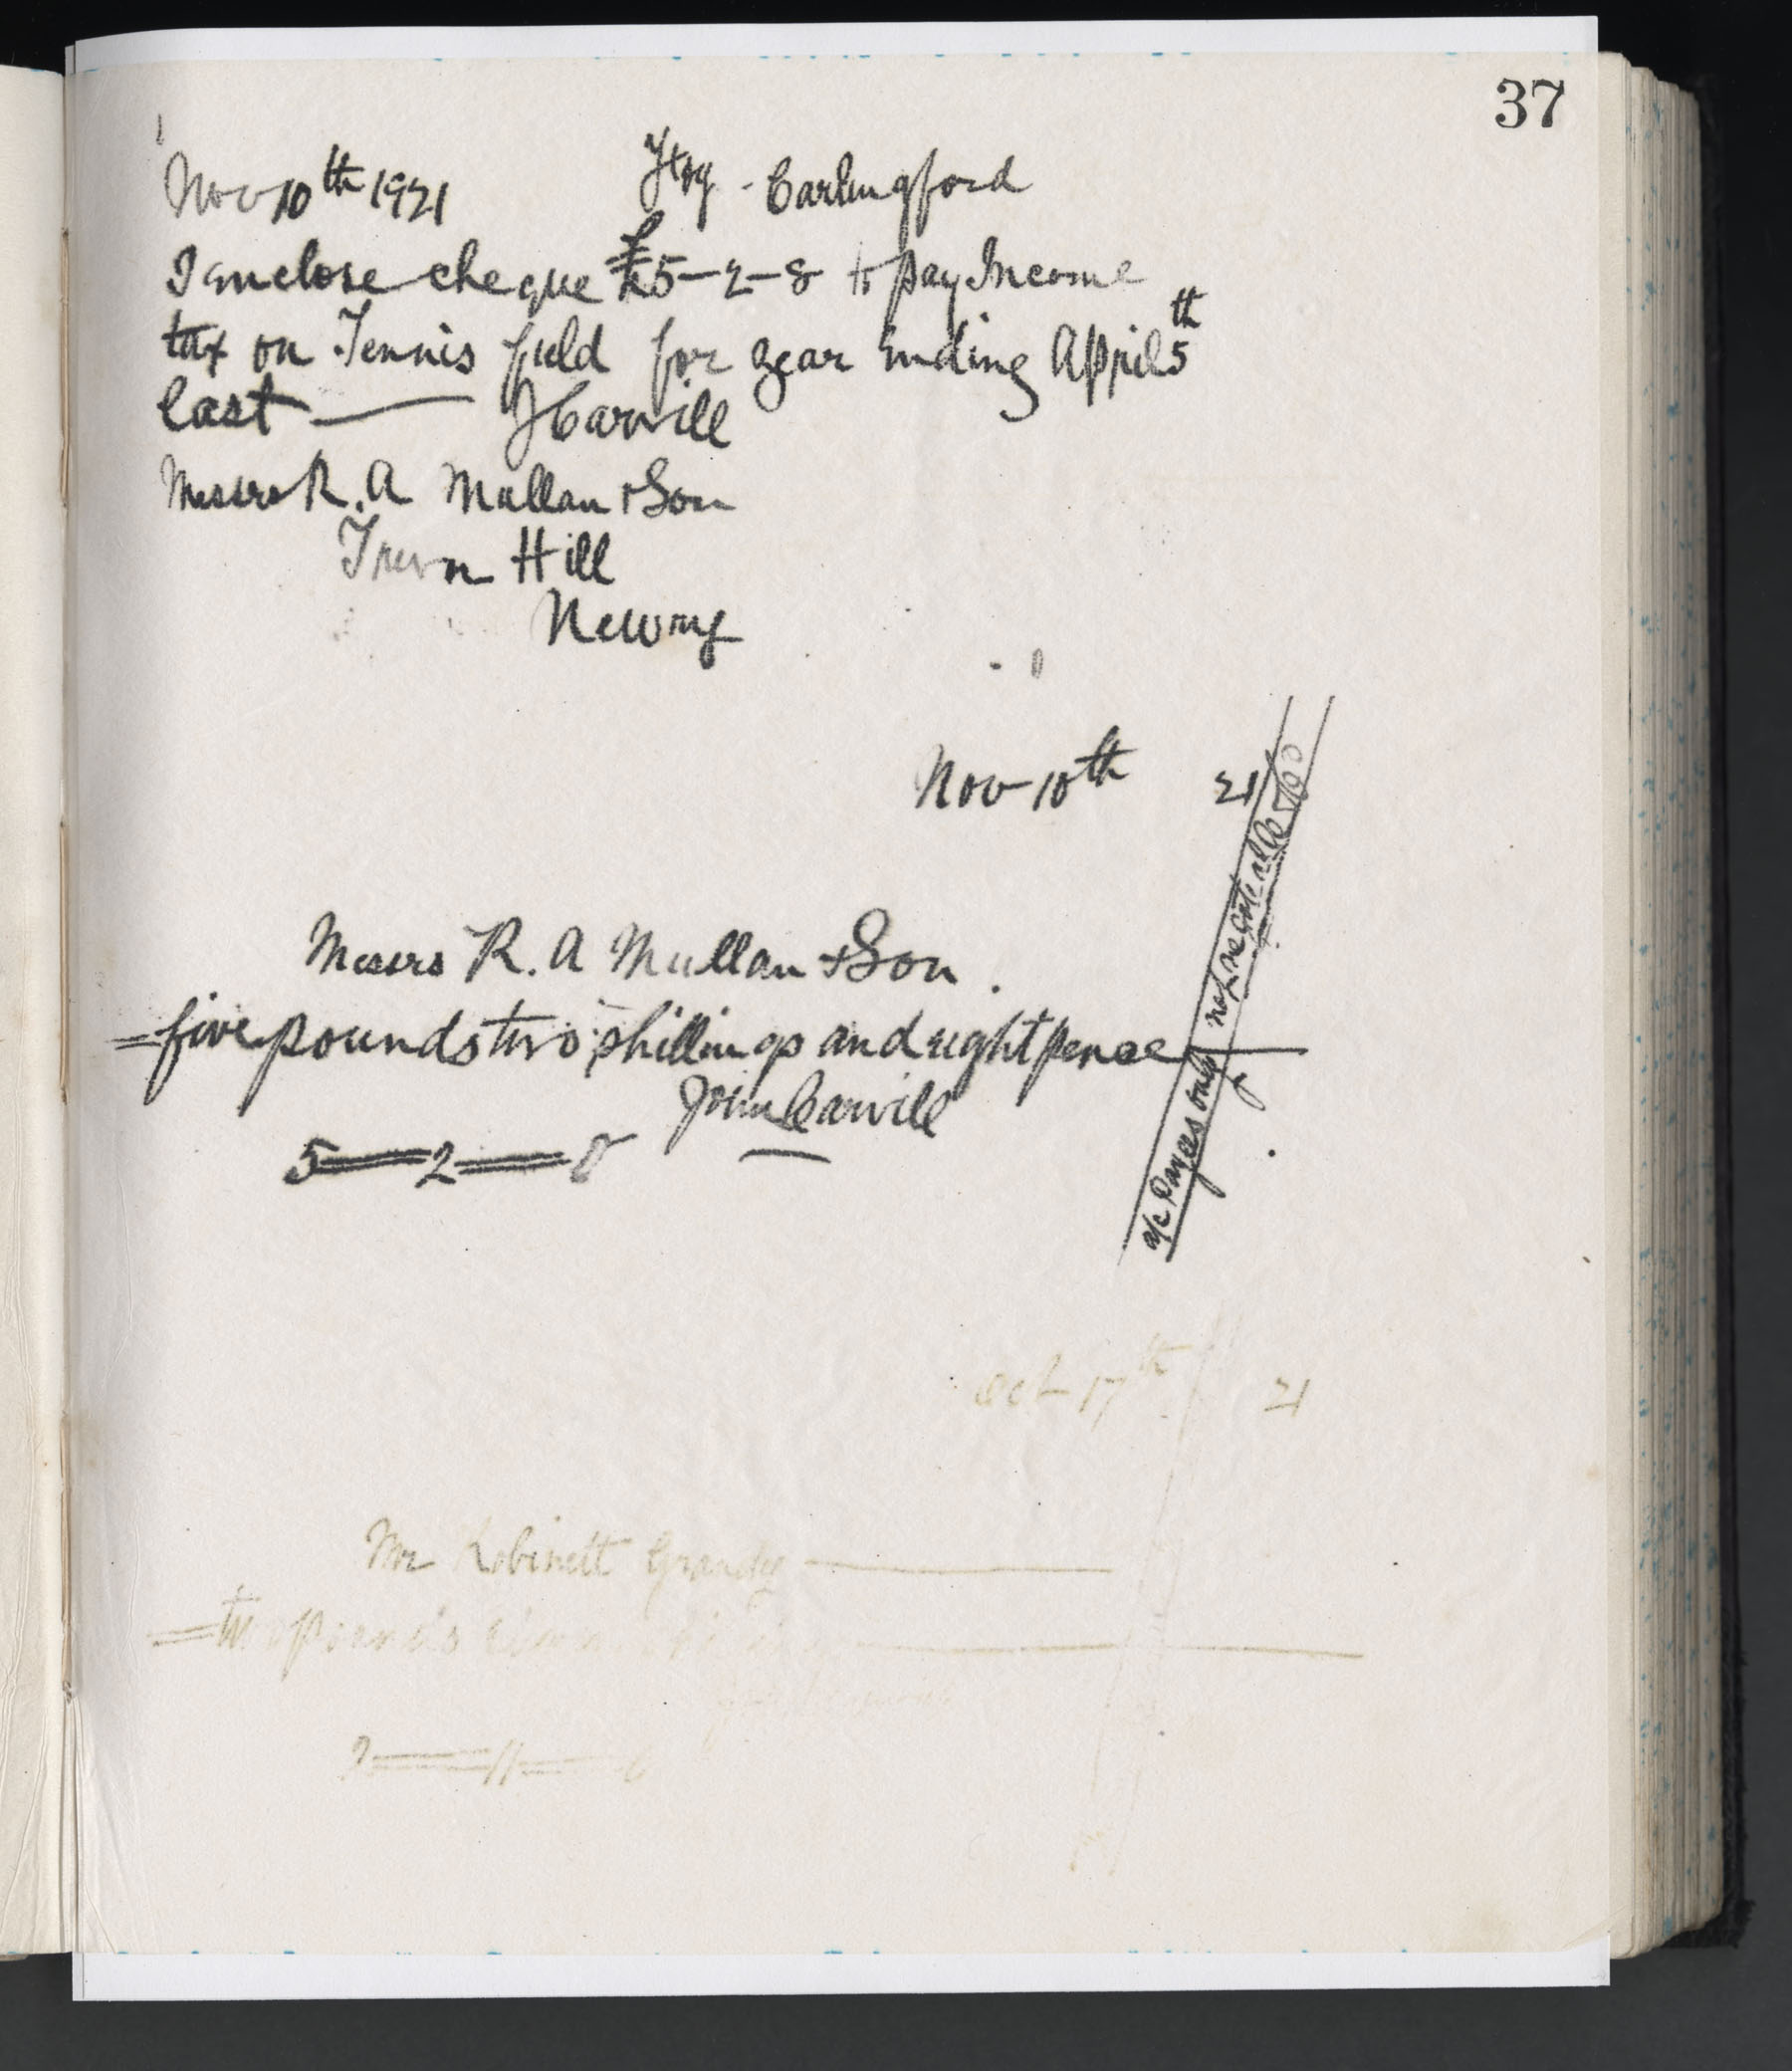 37
Nov 10th 1921 Carlingford
I enclose cheque £5-2-8 to pay Income
tax on Tennis field for year ending April 5th
last — J Carvill
Messrs R. A Mullan & Son
Trevor Hill
Newry
Nov 10th 21
a/c Payees only not negotiable & Co
Messrs R. A Mullan & Son.
=five pounds two shillings and eight pence—
John Carvill
5=2=8
Oct 17th 21
Mr Robinett Grandy —
=two pounds eleven
2=11=0